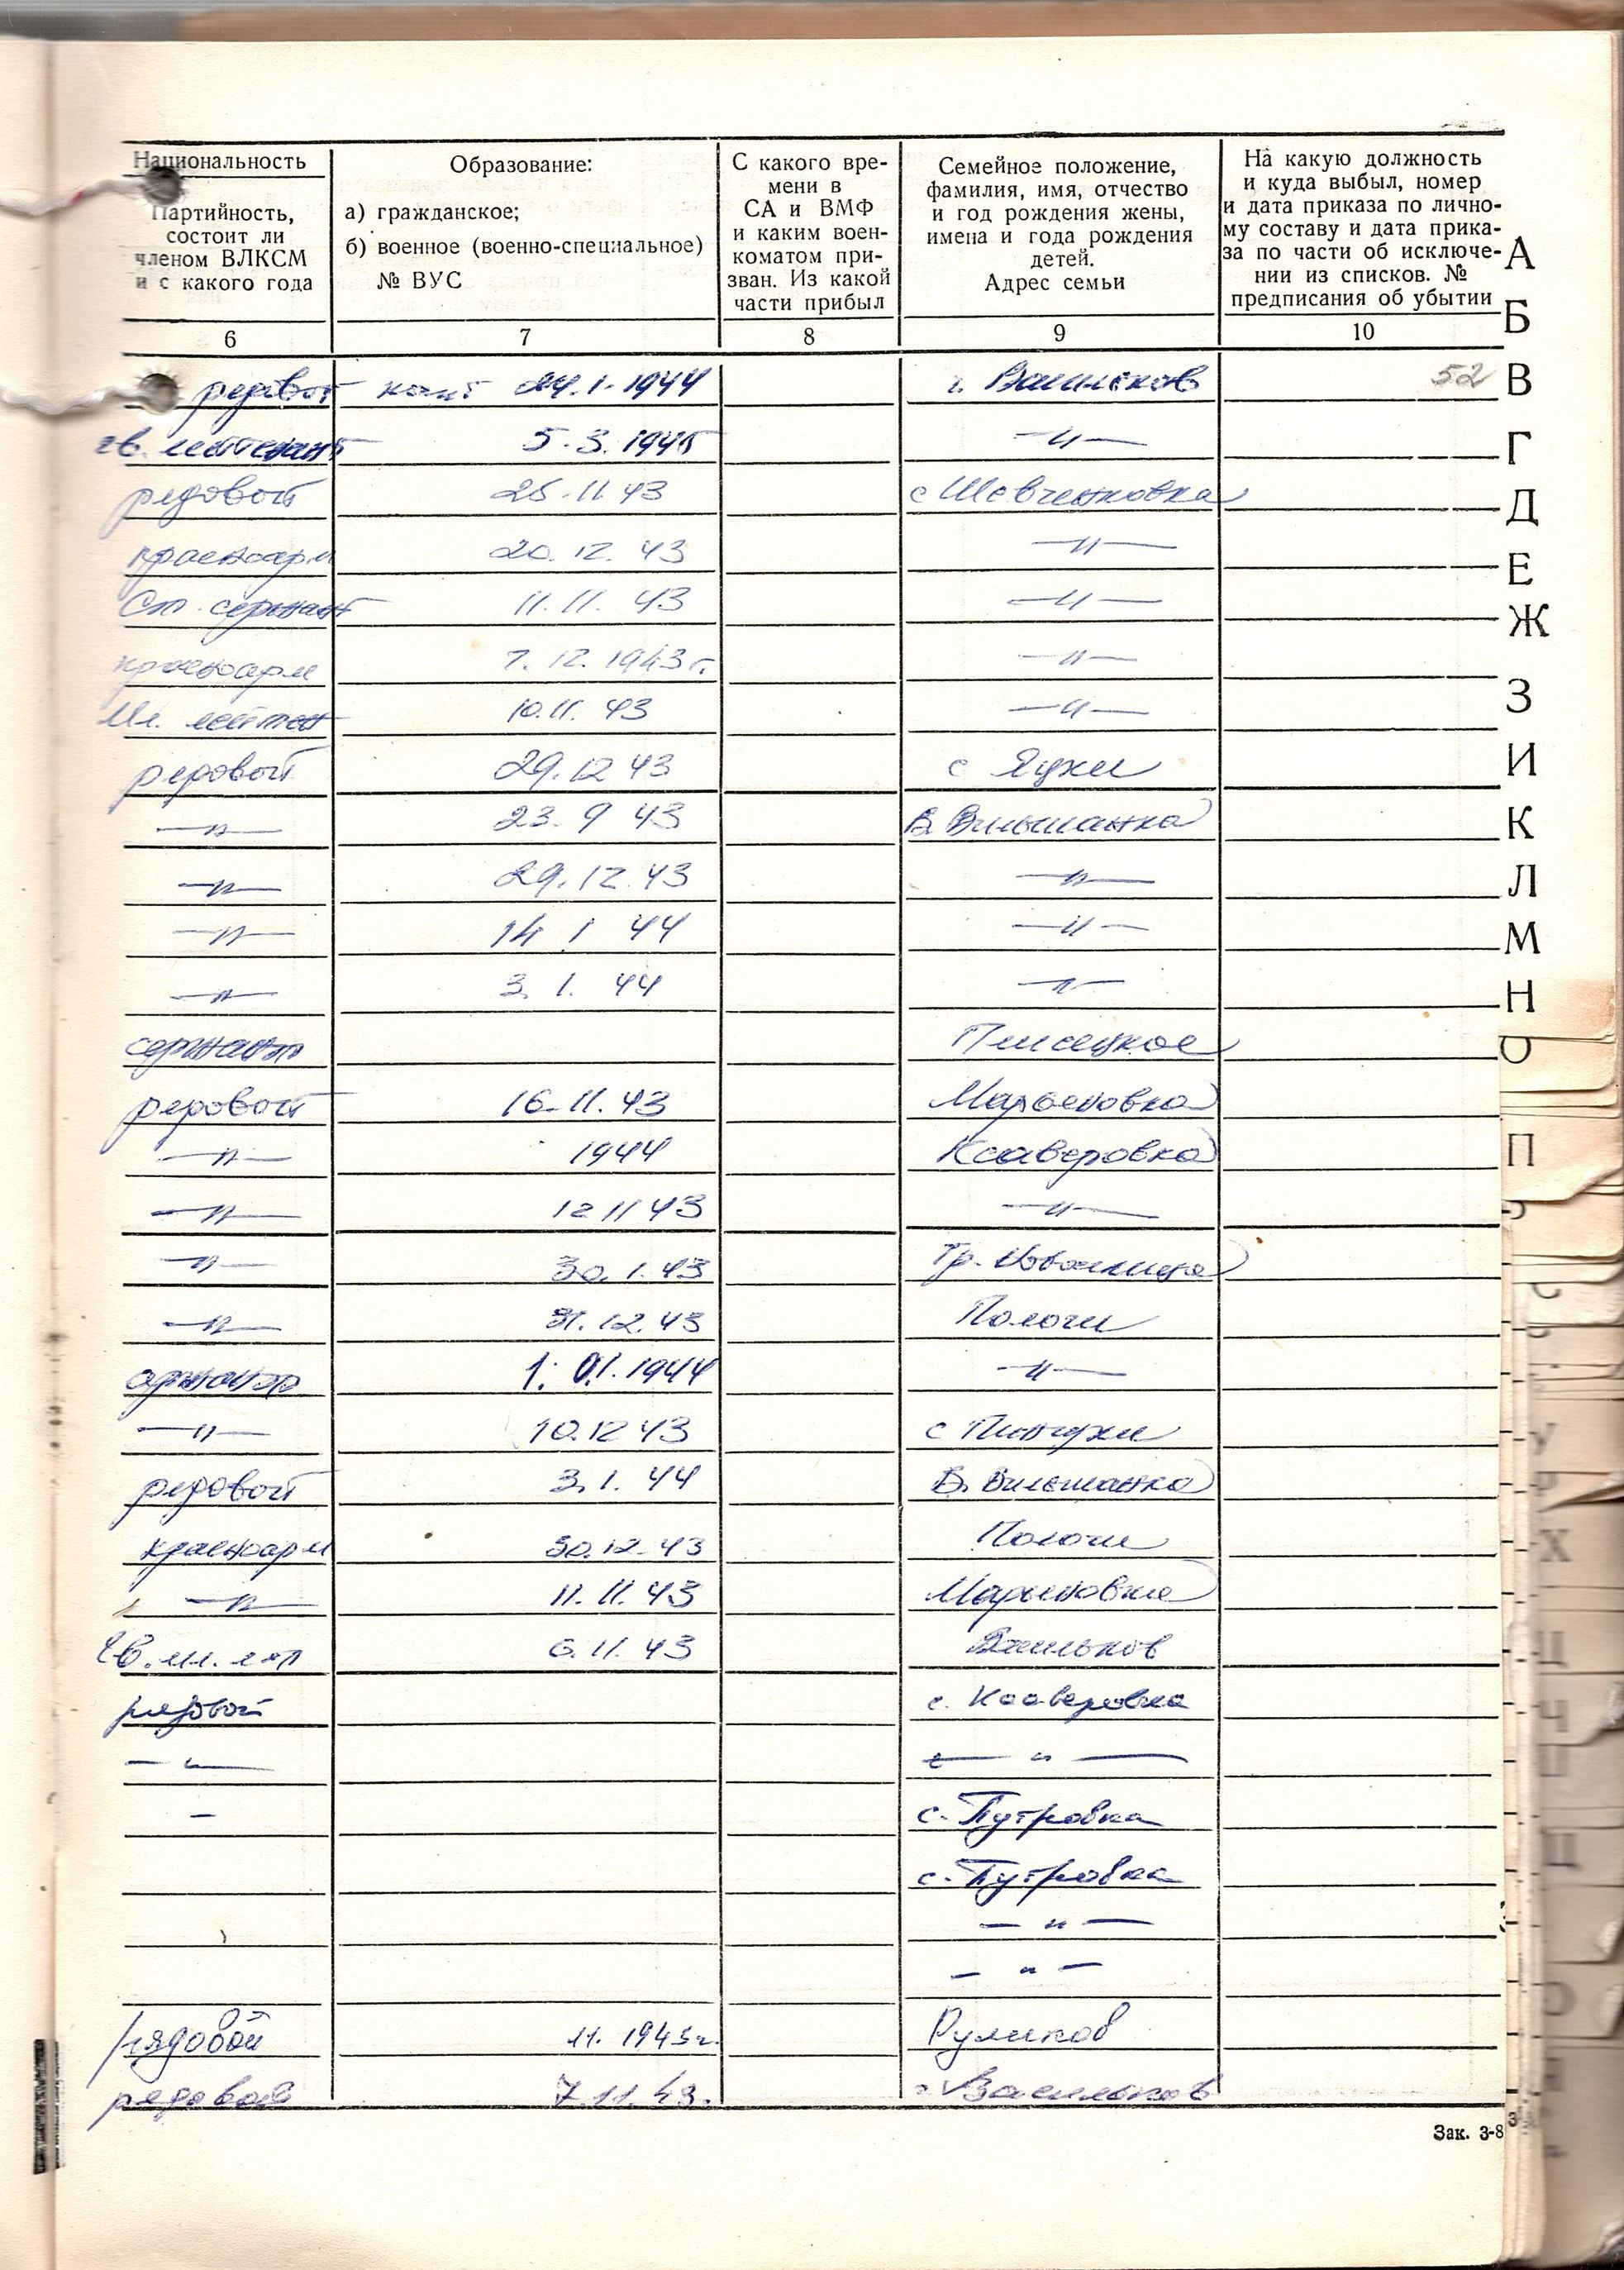 Национальность
Партийность,
состоит ли
членом ВЛКСМ
и с какого года
Образование:
а) гражданское;
б) военное (военно-специальное)
№ ВУС
С какого вре-
мени в
СА и ВМФ
и каким воен-
коматом при-
зван. Из какой
части прибыл
Семейное положение,
фамилия, имя, отчество
и год рождения жены,
имена и года рождения
детей.
Адрес семьи
На какую должность
и куда выбыл, номер
и дата приказа по лично-
му составу и дата прика-
за по части об исключе-
нии из списков. №
предписания об убытии
6 7 8 9 10
рядовой 24.1.1944 г. Васильков 52
гв. лейтенант 5.3.1945 —"—
рядовой 25.11 43 с Шевченковка
красноарм 20.12.43 —"—
Ст. сержант 11.11.43 —"—
красноарм 7.12.1943 г. —"—
Мл. лейтен 10.11.43 —"—
рядовой 29.12 43 с Яцки
—"— 23.9 43 В. Вильшанка
—"— 29.12.43 —"—
—"— 14 1 44 —"—
—"— 3.1.44 —"—
сержант Плисецкое
рядовой 16.11.43 Марьяновка
—"— 1944 Ксаверовка
—"— 12 11 43 —"—
—"— 30.1.43
—"— 31.12.43 Пологи
сержант 1.01.1944 —"—
—"— 10.12 43 с Пинчуки
рядовой 3.1.44 В. Вильшанка
красноарм 30.12.43 Пологи
—"— 11.11.43 Марьяновка
Гв. мл. л-т 6.11.43 Васильков
рядовой с. Ксаверовка
—"— —"—
— с. Путровка
с. Путровка
—"—
—"—
рядовой 11.1943г.
рядовой 7.11.43. г. Васильков
Зак. 3-8
А
Б
В
Г
Д
Е
Ж
З
И
К
Л
М
Н
О
П
Р
С
У
Х
Ц
Ч
Щ